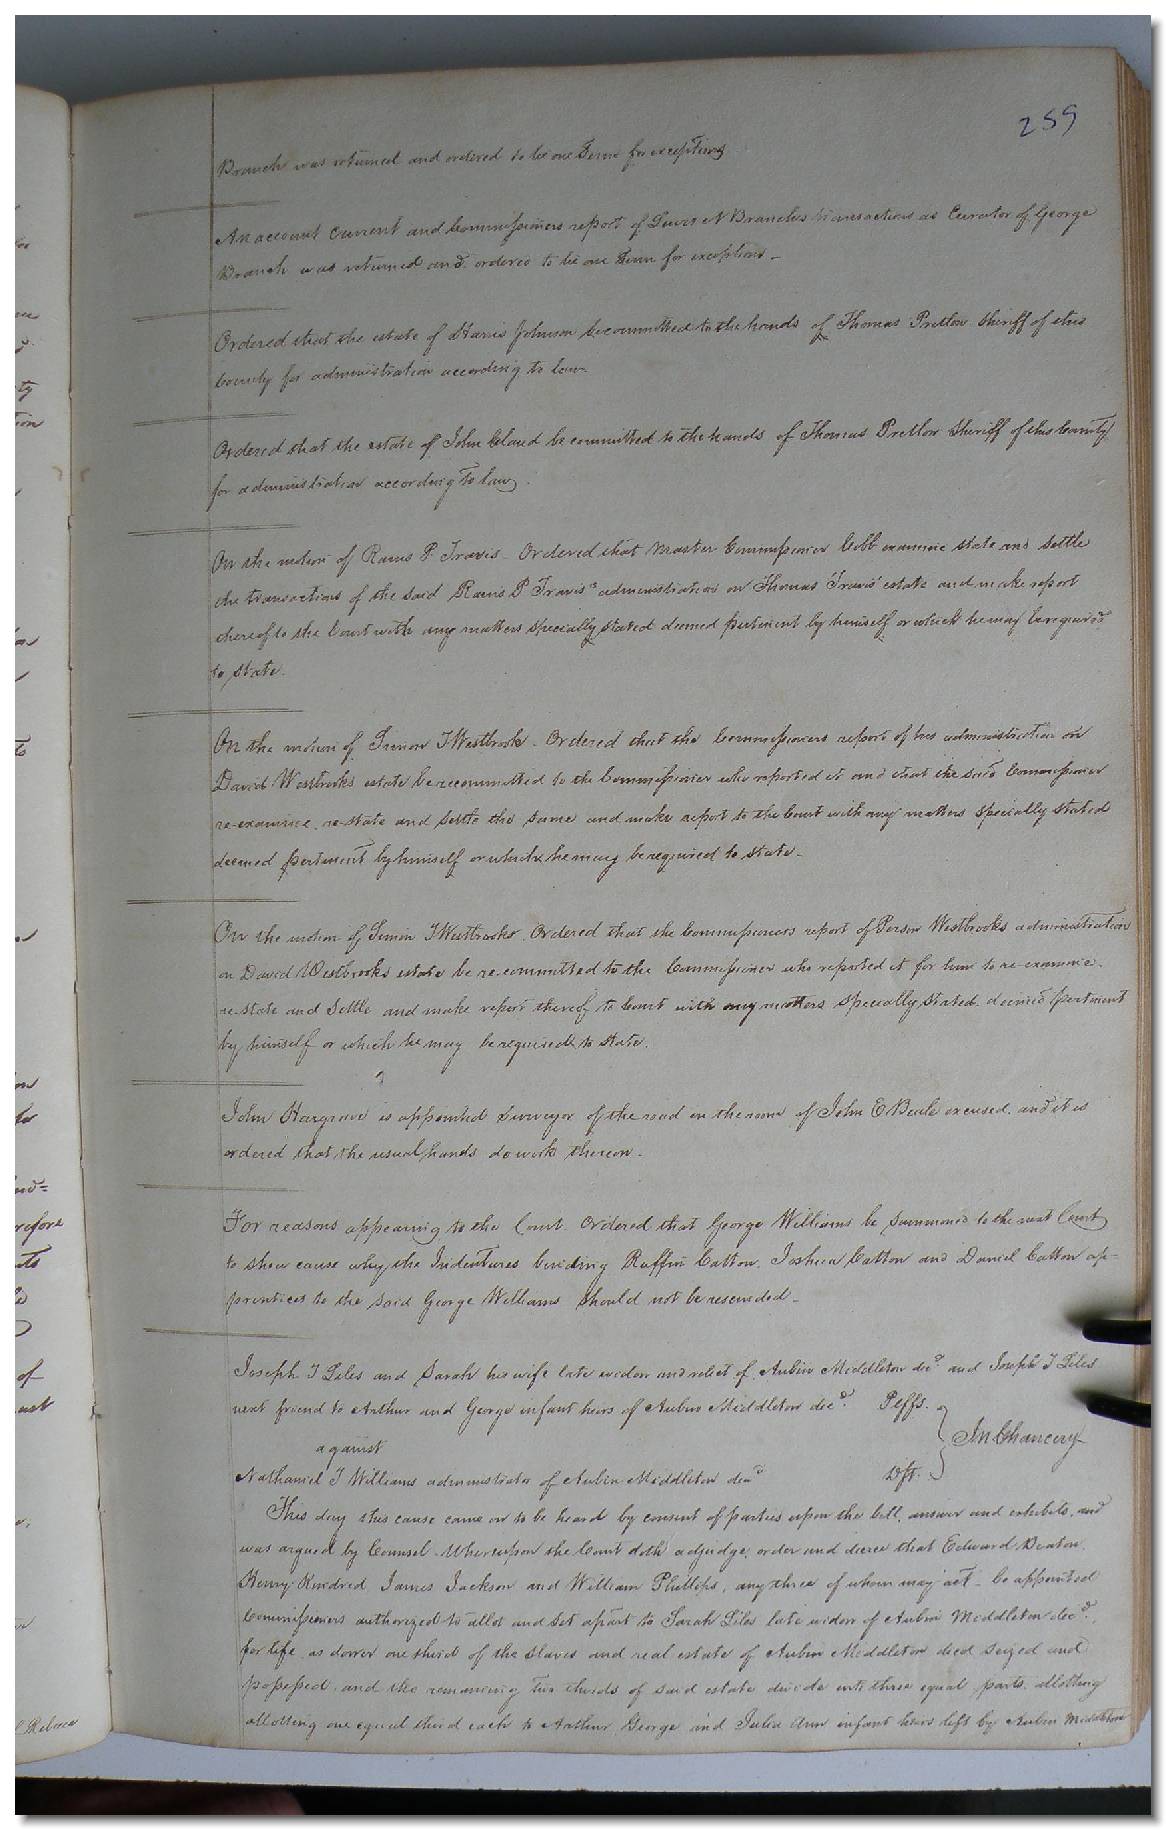 259
Branch was returned and ordered to lie one Term for exceptions
An account current and Commissioners report of Lewis N Branch's transactions as Curator of George
Branch was returned and ordered to lie one Term for exceptions -
Ordered that the estate of Harris Johnson be committed to the hands of Thomas Pretlow Sheriff of this
County for administration according to law.
Ordered that the estate of John Claud be committed to the hands of Thomas Pretlow Sheriff of this County
for administration according to law.
On the motion of P. Travis - Ordered that Master Commissioner Cobb examine state and settle
the transactions of the said P Travis's administration on Thomas Travis' estate and make report
thereof to the Court with any matters specially stated deemed pertinent by himself or which he may be required
to state.
On the motion of Simon T Westbrook - Ordered that the Commissioners report of his administration on
David Westbrooks estate be recommitted to the Commissioner who reported it and that the said Commissioner
re-examine, re-state and settle the same and make report to the Court with any matters specially stated
deemed pertinent by himself or which he may be required to state -
On the motion of Simon T Westbrooks. Ordered that the Commissioners report of Person Westbrooks administration
on David Westbrooks estate be re-committed to the Commissioner who reported it for him to re-examine.
re-state and settle and make report thereof to Court with any matters specially stated deemed pertinent
by himself or which he may be required to state.
John Hargrave is appointed surveyor of the road in the room of John E Beale excused, and it is
ordered that the usual hands do work thereon -
For reasons appearing to the Court. Ordered that George Williams be summoned to the next Court
to shew cause why the Indentures binding Ruffin Catton, Joshua Catton and Daniel Catton ap=
prentices to the said George Williams should not be rescinded -
Joseph T Liles and Sarah his wife late widow and relict of Aubin Middleton decd. and Joseph T Liles
next friend to Arthur and George infant heirs of Aubin Middleton decd. Pltffs.
against } In Chancery
Nathaniel T Williams administrator of Aubin Middleton decd Dft.
This day this cause came on to be heard by consent of parties upon the bill, answer and exhibits, and
was argued by Counsel. Whereupon the Court doth adjudge, order and decree that Edward Beaton,
Henry Kindred, James Jackson and William Phillips, any three of whom may act - be appointed
Commissioners authorized to allot and set apart to Sarah Liles late widow of Aubin Middleton decd.
for life, as dower one third of the slaves and real estate of Aubin Middleton died seized and
possessed, and the remaining two thirds of said estate divide into three equal parts, allotting
allotting one equal third each to Arthur, George and Julia Ann infant heirs left by Aubin Middleton